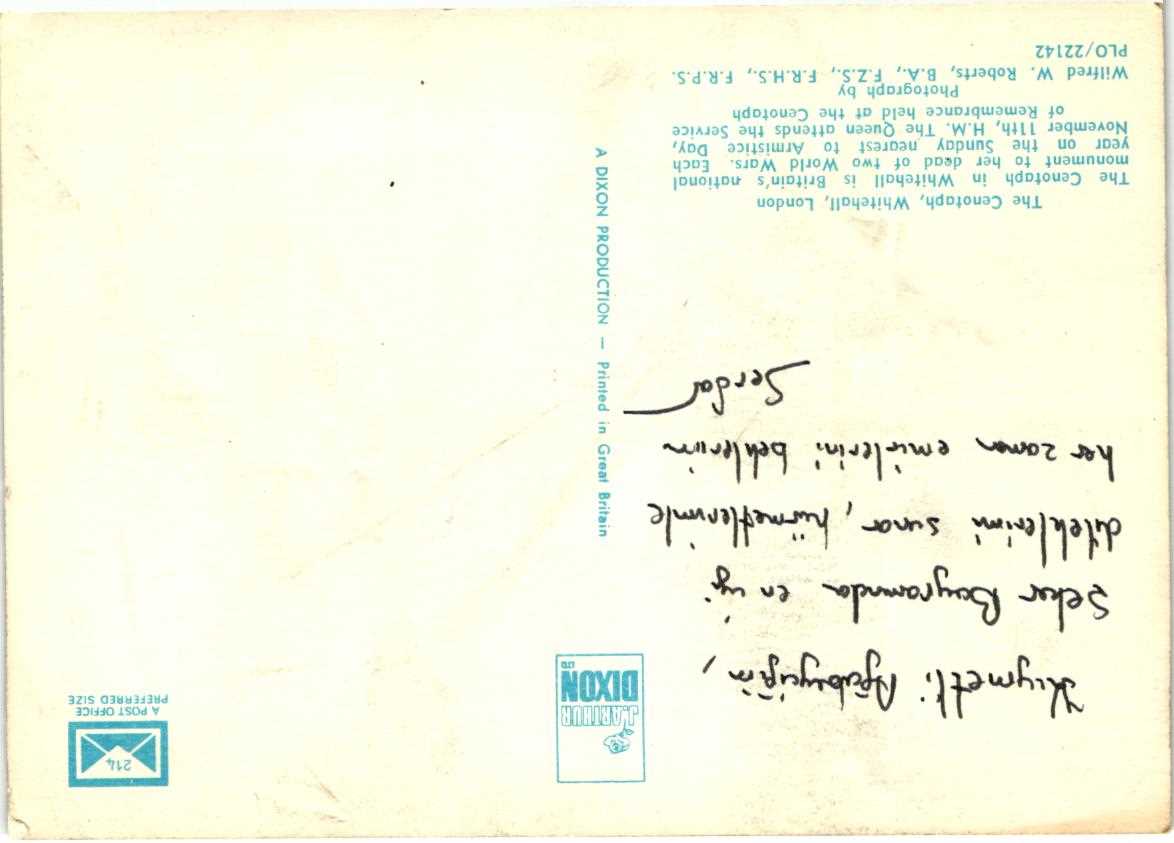 Kıymetli Ağabeyciğim,
Şeker Bayramında en iyi
dileklerimi sunar, hürmetlerimle
her zaman emirlerini beklerim
Serdar
The Cenotaph, Whitehall, London
The Cenotaph in Whitehall is Britain's national
monument to her dead of two World Wars. Each
year on the Sunday nearest to Armistice Day,
November 11th, H.M. The Queen attends the Service
of Remembrance held at the Cenotaph
Photograph by
Wilfred W. Roberts, B.A., F.Z.S., F.R.H.S., F.R.P.S.
PLO/22142
J. ARTHUR
DIXON
LTD
A DIXON PRODUCTION — Printed in Great Britain
214
A POST OFFICE
PREFERRED SIZE